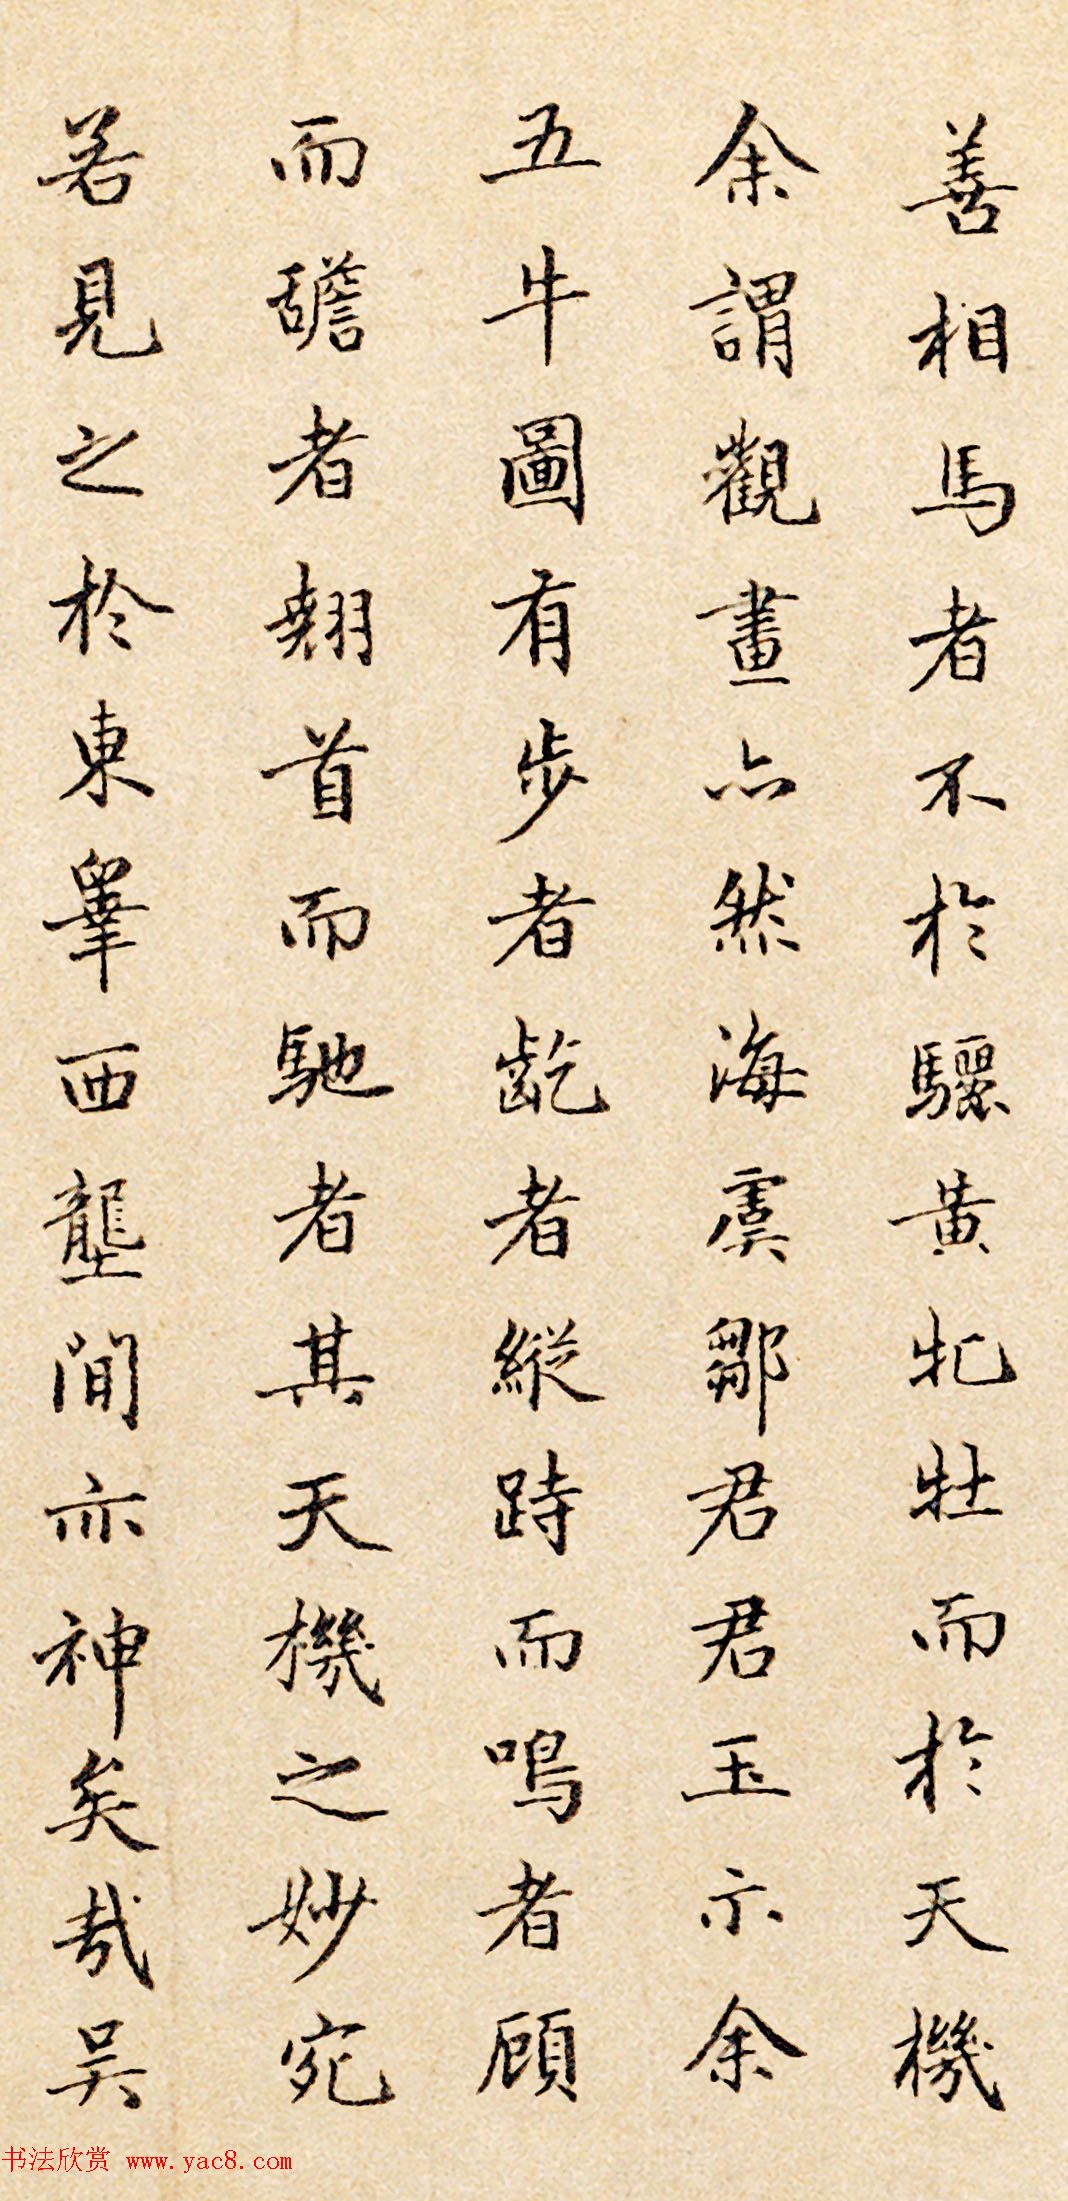 善相馬者不於驪黃牝牡而於天機
余謂觀畫亦然海虞鄒君君玉示余
五牛圖有步者齕者縱跱而鳴者顧
而䑛者翹首而馳者其天機之妙宛
若見之於東睾西壟間亦神矣哉吴
书法欣赏 www.yac8.com